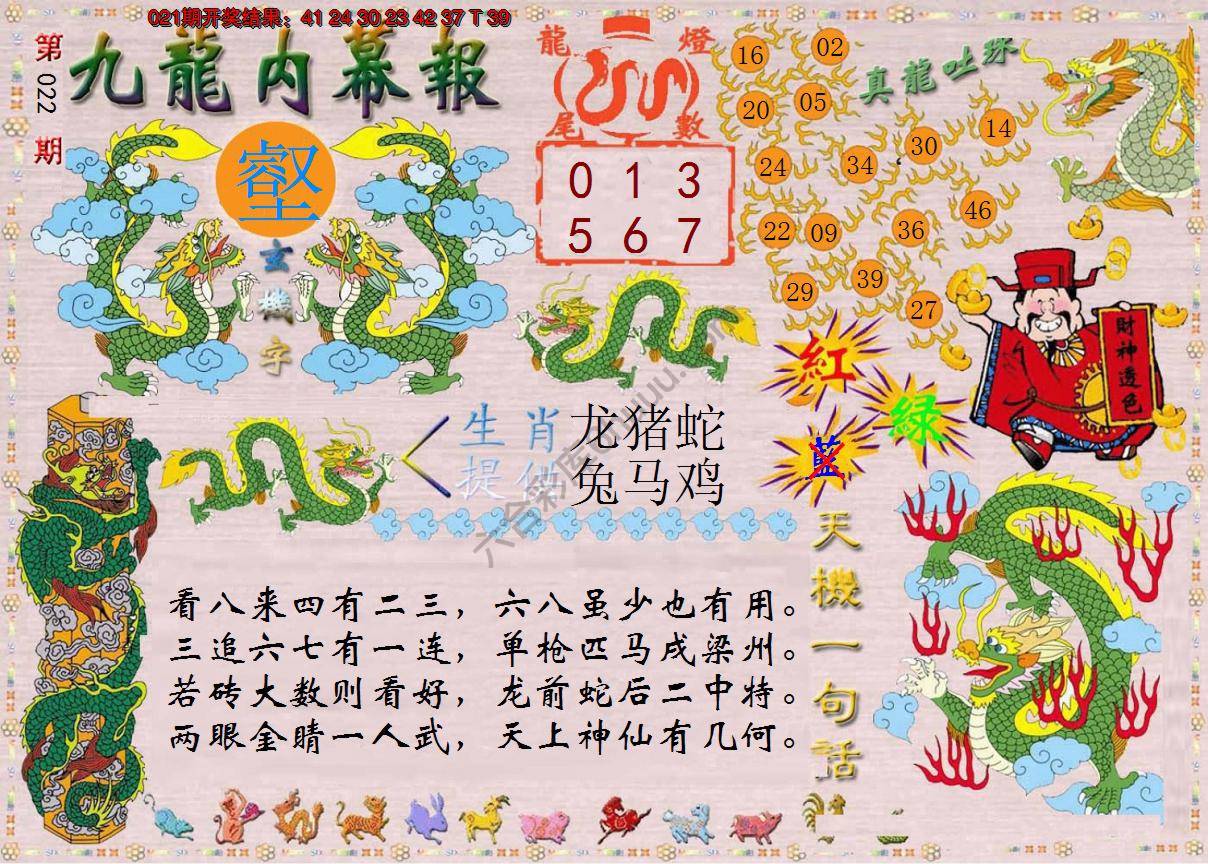 021期开奖结果：41 24 30 23 42 37 T 39
第022期
九龍内幕報
壑
玄機字
龍燈
尾數
0 1 3
5 6 7
真龍吐珠
16 02
20 05
24 34 30 14
22 09 36 46
29 39 27
財神透色
紅
綠
藍
生肖 龙猪蛇
提供 兔马鸡
六合彩库
天機一句話
看八来四有二三，六八虽少也有用。
三追六七有一连，单枪匹马戌梁州。
若砖大数则看好，龙前蛇后二中特。
两眼金睛一人武，天上神仙有几何。